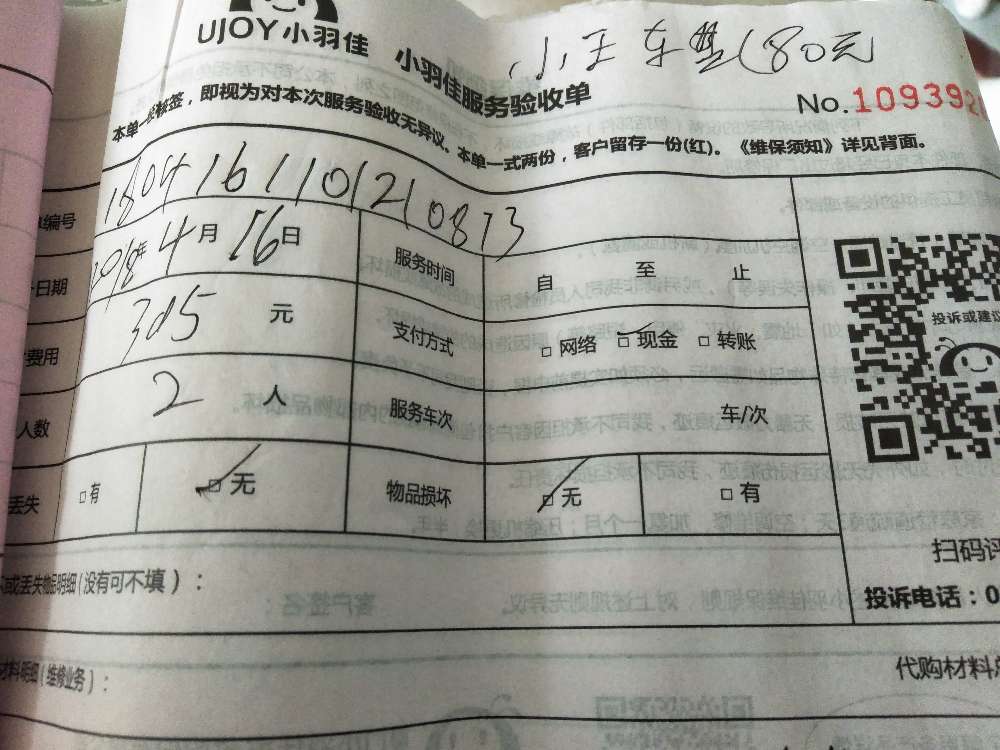 UJOY小羽佳 小羽佳服务验收单
小王 车垫(80元
No.109392
本单一经核签，即视为对本次服务验收无异议。本单一式两份，客户留存一份(红)。《维保须知》详见背面。
单编号 1804161101210873
日期 2018年4月16日 服务时间 自 至 止
费用 305 元 支付方式 □网络 ☑现金 □转账
人数 2 人 服务车次 车/次
丢失 □有 ☑无 物品损坏 ☑无 □有
投诉或建议
扫码评
坏或丢失物品明细(没有可不填)：
投诉电话：0
材料明细(维修业务)：
代购材料总